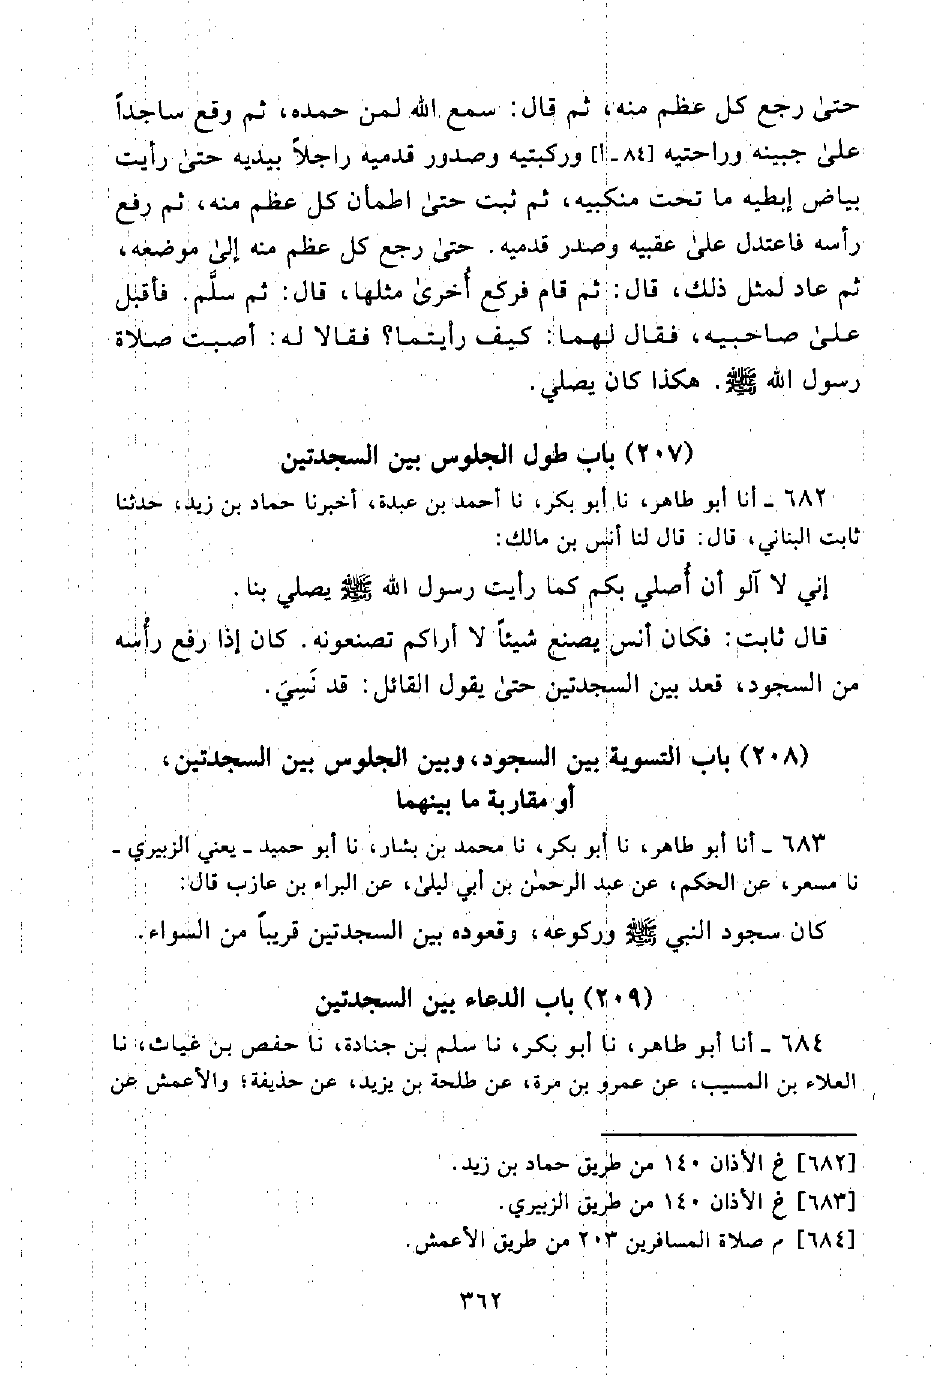 حتىٰ رجع كل عظم منه، ثم قال: سمع الله لمن حمده، ثم وقع ساجداً
علىٰ جبينه وراحتيه [٨٤ـأ] وركبتيه وصدور قدميه راجلاً بيديه حتىٰ رأيت
بياض إبطيه ما تحت منكبيه، ثم ثبت حتىٰ اطمأن كل عظم منه، ثم رفع
رأسه فاعتدل علىٰ عقبيه وصدر قدميه. حتىٰ رجع كل عظم منه إلىٰ موضعه،
ثم عاد لمثل ذلك، قال: ثم قام فركع أُخرىٰ مثلها، قال: ثم سلَّم. فأقبل
علىٰ صاحبيه، فقال لهما: كيف رأيتما؟ فقالا له: أصبت صلاة
رسول الله ﷺ. هكذا كان يصلي.
(٢٠٧) باب طول الجلوس بين السجدتين
٦٨٢ ـ أنا أبو طاهر، نا أبو بكر، نا أحمد بن عبدة، أخبرنا حماد بن زيد، حدثنا
ثابت البناني، قال: قال لنا أنس بن مالك:
إني لا آلو أن أُصلي بكم كما رأيت رسول الله ﷺ يصلي بنا.
قال ثابت: فكان أنس يصنع شيئاً لا أراكم تصنعونه. كان إذا رفع رأسه
من السجود، قعد بين السجدتين حتىٰ يقول القائل: قد نَسِيَ.
(٢٠٨) باب التسوية بين السجود، وبين الجلوس بين السجدتين،
أو مقاربة ما بينهما
٦٨٣ ـ أنا أبو طاهر، نا أبو بكر، نا محمد بن بشار، نا أبو حميد ـ يعني الزبيري ـ
نا مسعر، عن الحكم، عن عبد الرحمٰن بن أبي ليلىٰ، عن البراء بن عازب قال:
كان سجود النبي ﷺ وركوعه، وقعوده بين السجدتين قريباً من السواء.
(٢٠٩) باب الدعاء بين السجدتين
٦٨٤ ـ أنا أبو طاهر، نا أبو بكر، نا سلم بن جنادة، نا حفص بن غياث، نا
العلاء بن المسيب، عن عمرو بن مرة، عن طلحة بن يزيد، عن حذيفة؛ والأعمش عن
[٦٨٢] خ الأذان ١٤٠ من طريق حماد بن زيد.
[٦٨٣] خ الأذان ١٤٠ من طريق الزبيري.
[٦٨٤] م صلاة المسافرين ٢٠٣ من طريق الأعمش.
٣٦٢